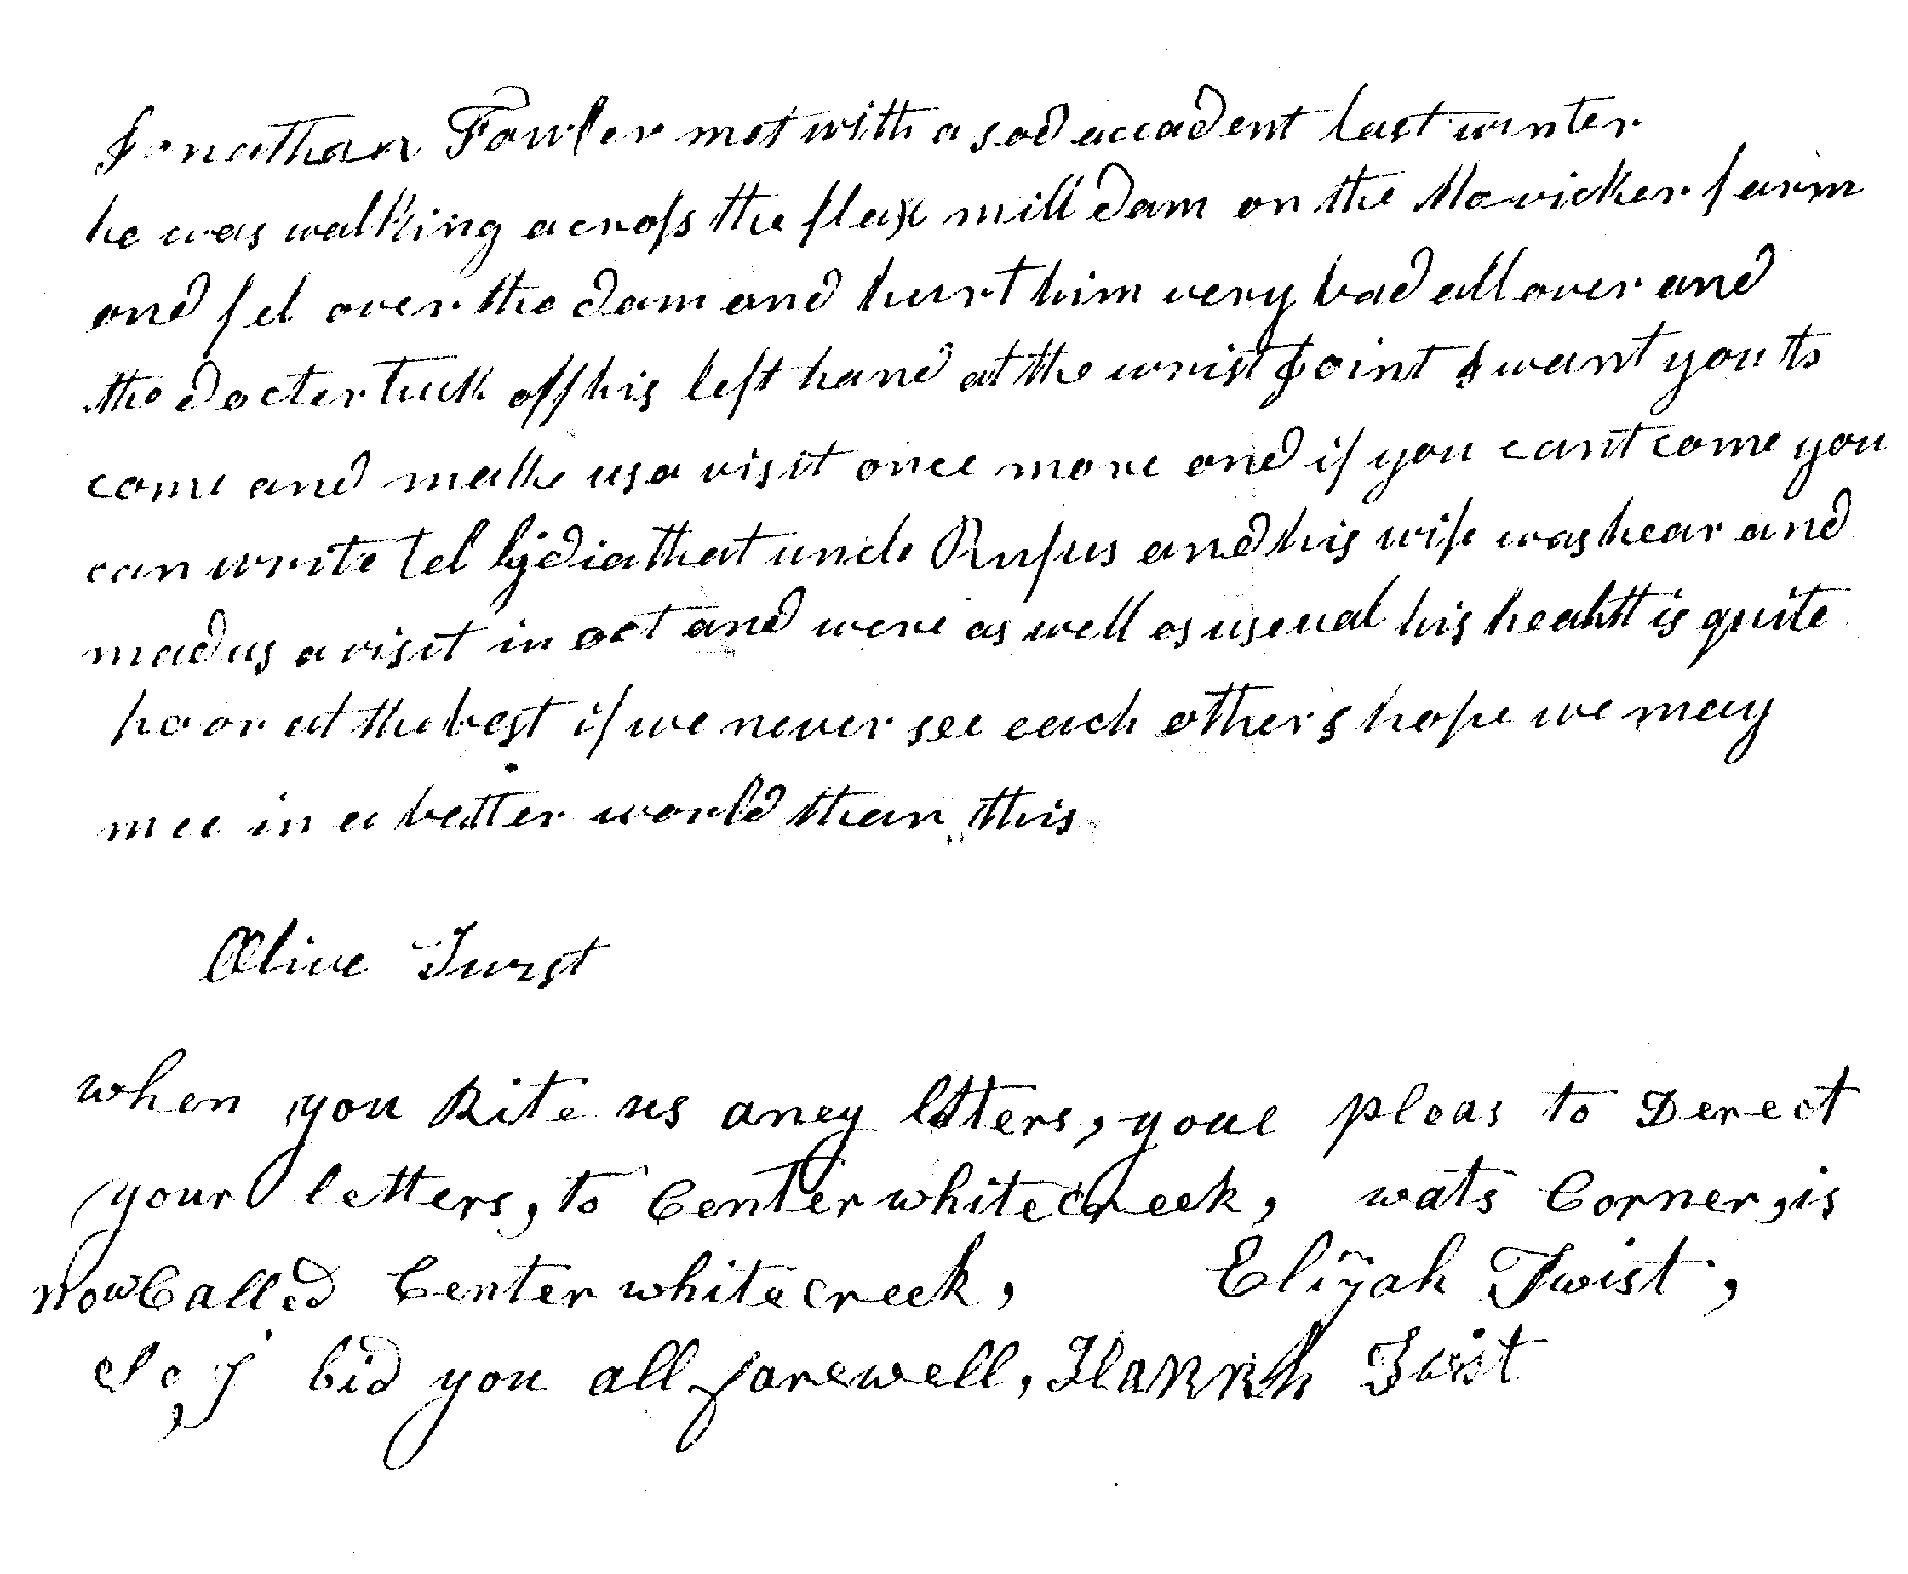 Jonathan Fowler met with a sad accadent last winter
he was walking across the flax mill dam on the Mavicker farm
and fel over the dam and hurt him very bad all over and
the docter tuck off his left hand at the wrist Joint I want you to
come and make us a visit once more and if you cant come you
can write tel lydia that uncle Rufus and his wife was hear and
mad us a visit in oct and were as well as useual his healht is quite
poor at the best if we never see each others hope we may
mee in a better world than this
Olive Twist
when you Rite us aney letters, youl pleas to Derect
your letters, to Center whitecreek, wats Corner, is
now Called Center whitecreek, Elijah Twist,
So, I bid you all farewell, Hannah Twist